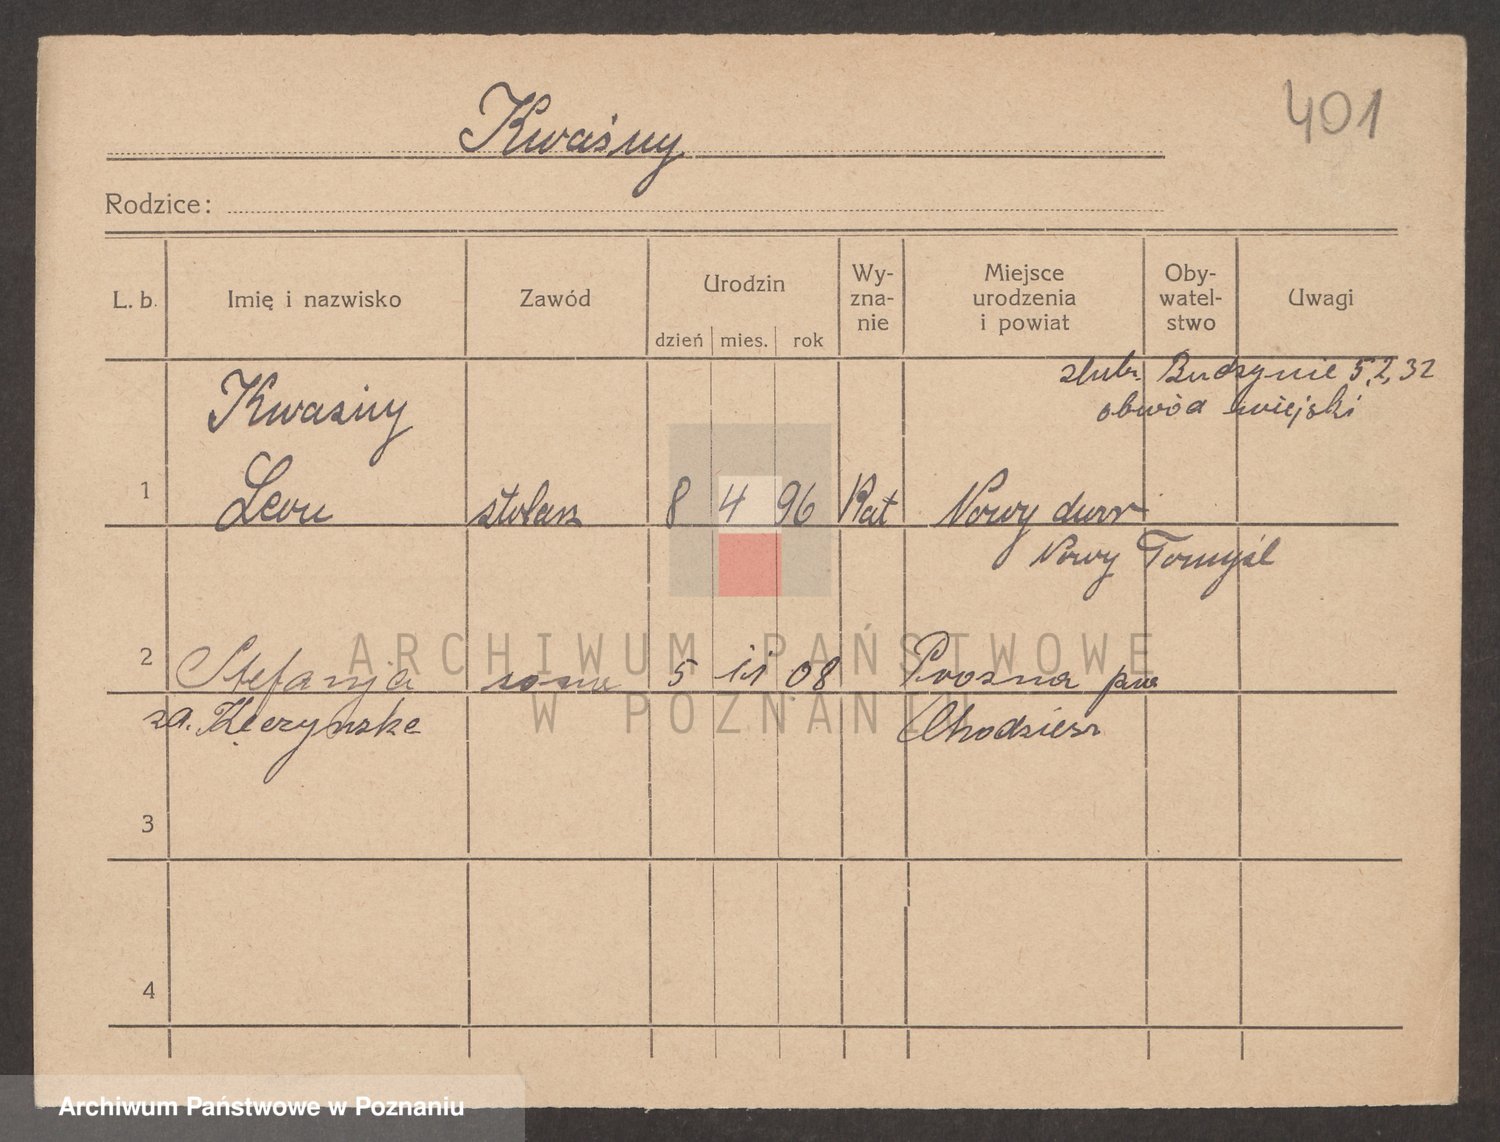 401
Kwaśny
Rodzice:
L. b.
Imię i nazwisko
Zawód
Urodzin
dzień
mies.
rok
Wy-
zna-
nie
Miejsce
urodzenia
i powiat
Oby-
watel-
stwo
Uwagi
Budzynie 5,2,32
obwód wiejski
Kwaśny
1
Leon
stolarz
8
4
96
Kat
Nowy dwór
Nowy Tomyśl
2
Stefanja
żona
5
11
08
Prosna pow
za. Kęczynska
Chodzież
3
4
ARCHIWUM PAŃSTWOWE
W POZNANIU
Archiwum Państwowe w Poznaniu